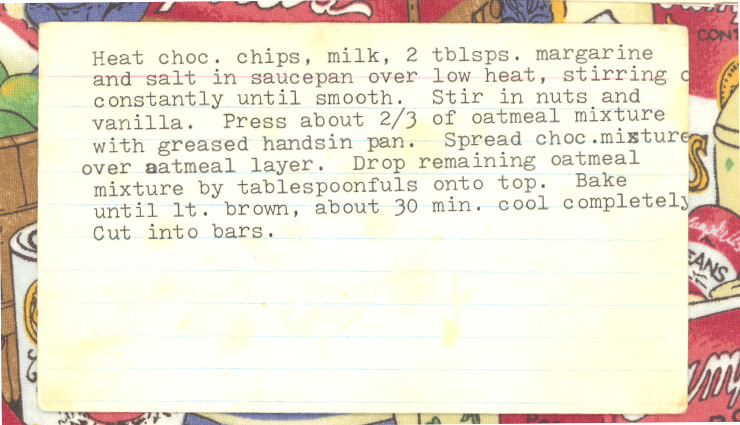 Heat choc. chips, milk, 2 tblsps. margarine
and salt in saucepan over low heat, stirring c
constantly until smooth.  Stir in nuts and
vanilla.  Press about 2/3 of oatmeal mixture
with greased handsin pan.  Spread choc.mixture
over aatmeal layer.  Drop remaining oatmeal
mixture by tablespoonfuls onto top.  Bake
until lt. brown, about 30 min. cool completely
Cut into bars.
CONT
EANS